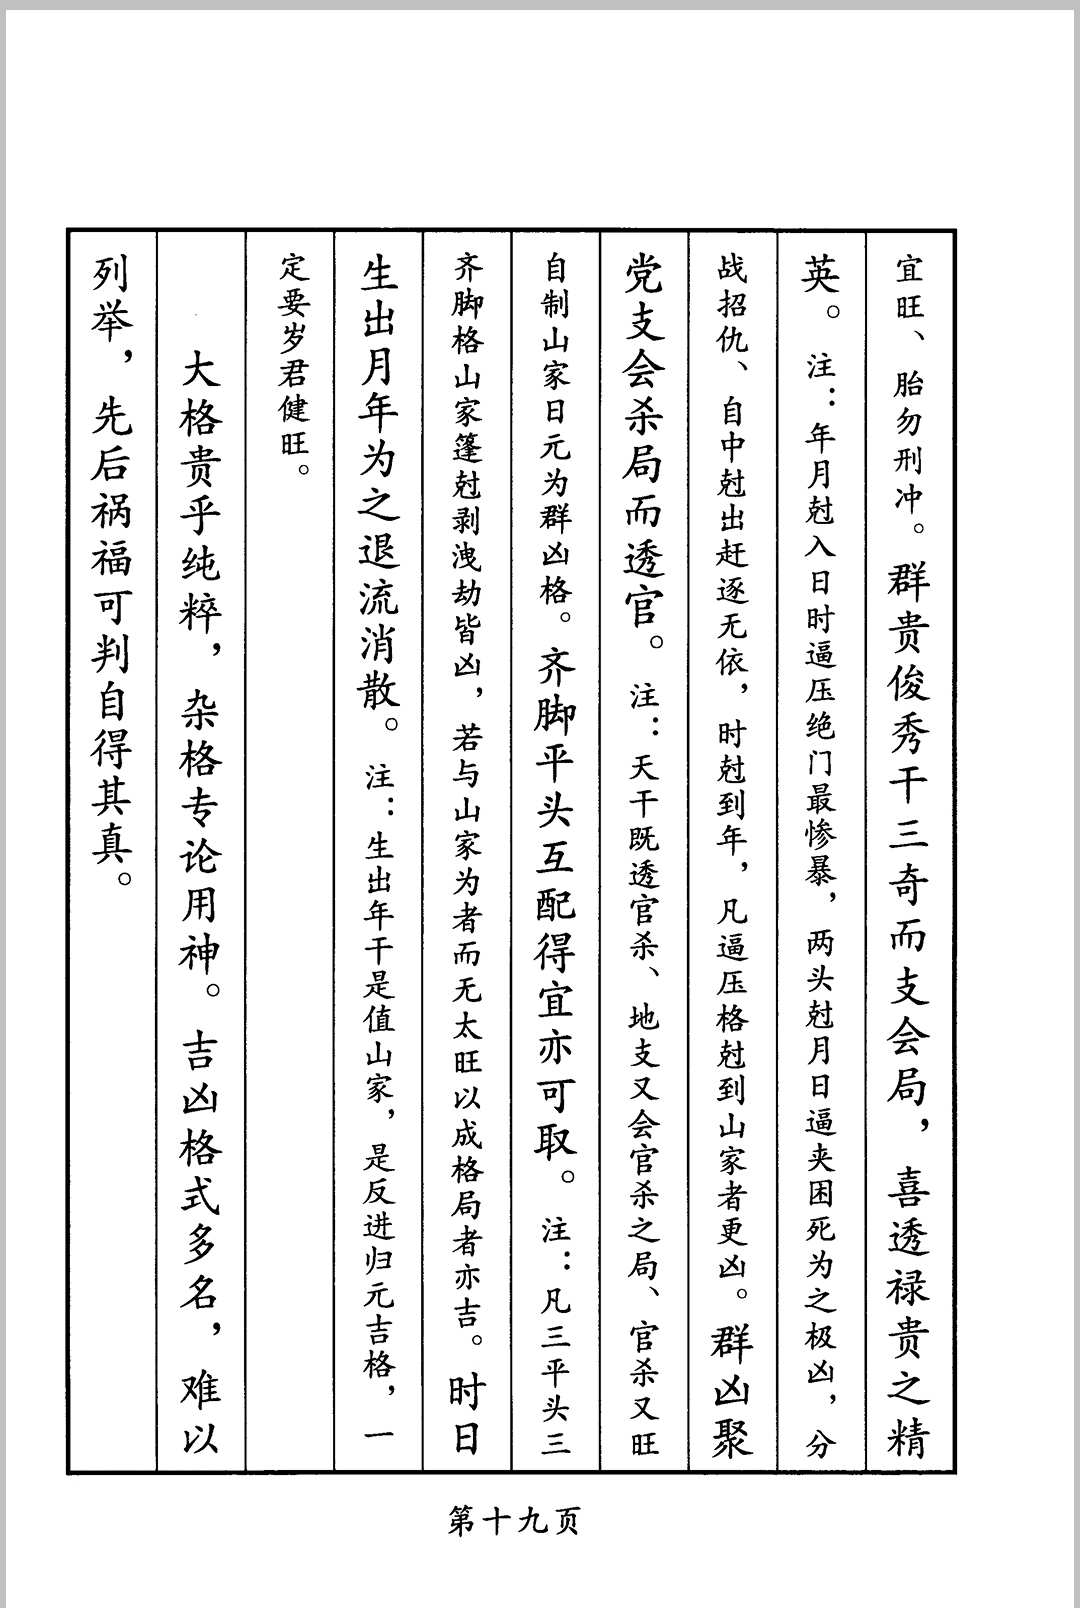 宜旺、胎勿刑冲。群贵俊秀干三奇而支会局，喜透禄贵之精
英。注：年月尅入日时逼压绝门最惨暴，两头尅月日逼夹困死为之极凶，分
战招仇、自中尅出赶逐无依，时尅到年，凡逼压格尅到山家者更凶。群凶聚
党支会杀局而透官。注：天干既透官杀、地支又会官杀之局、官杀又旺
自制山家日元为群凶格。齐脚平头互配得宜亦可取。注：凡三平头三
齐脚格山家篷尅剥洩劫皆凶，若与山家为者而无太旺以成格局者亦吉。时日
生出月年为之退流消散。注：生出年干是值山家，是反进归元吉格，一
定要岁君健旺。
大格贵乎纯粹，杂格专论用神。吉凶格式多名，难以
列举，先后祸福可判自得其真。
第十九页